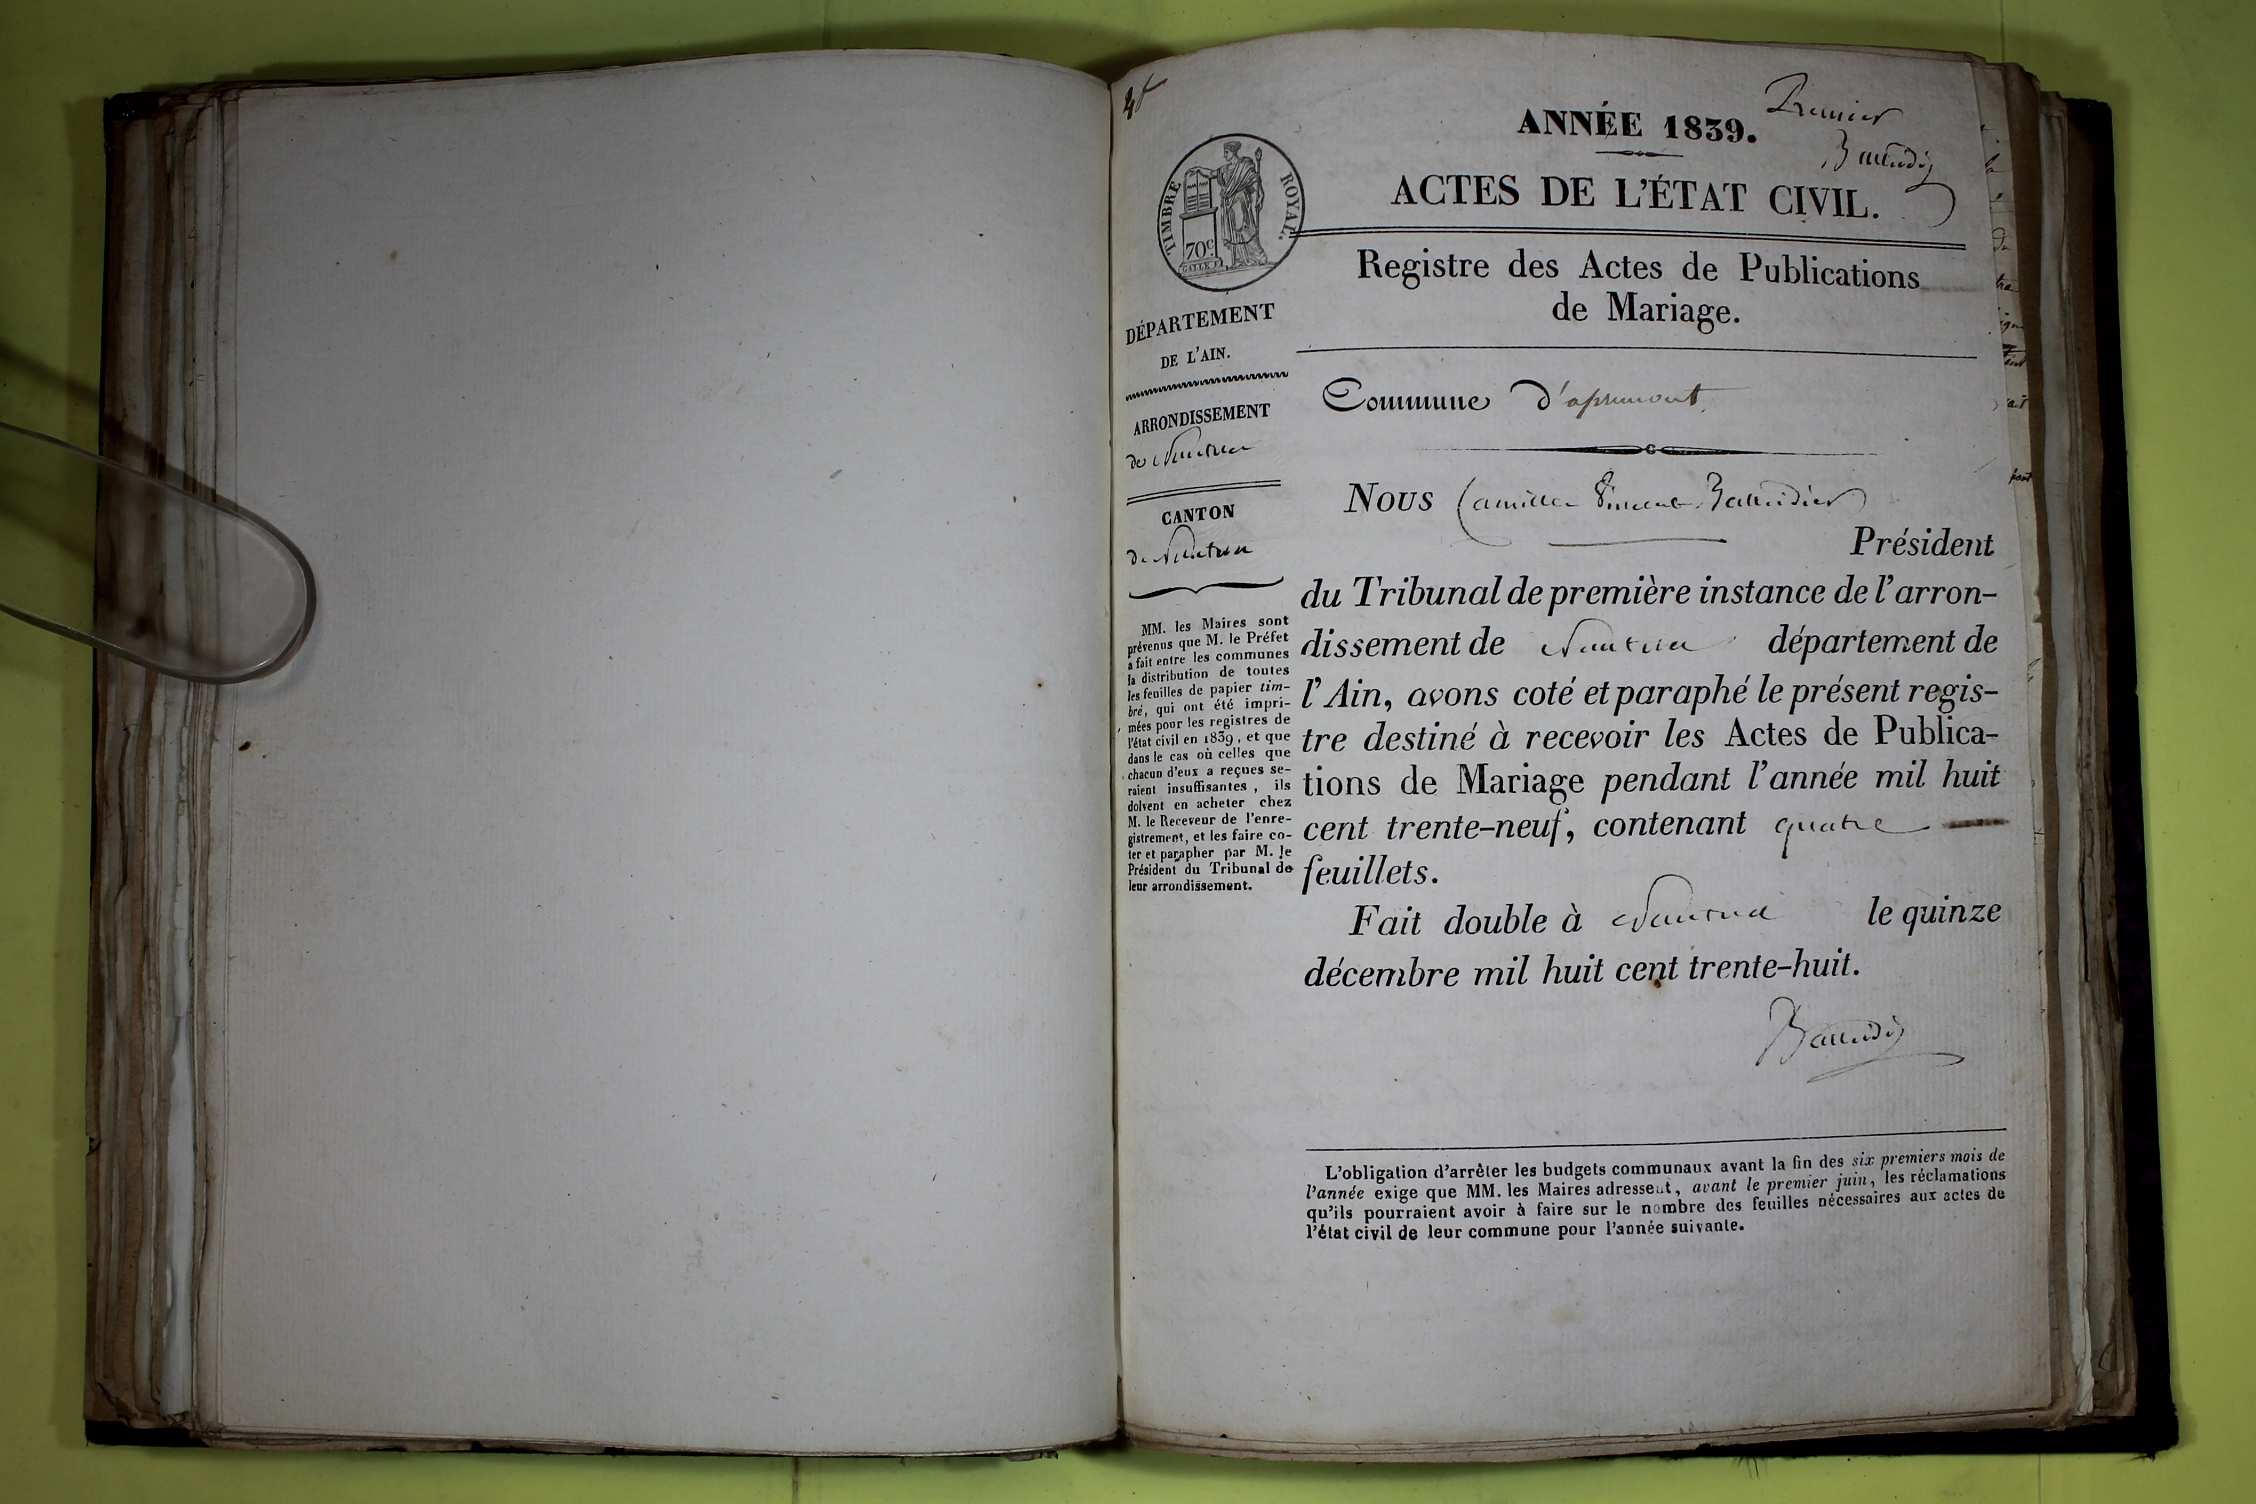 ANNÉE 1839.
Premier
ACTES DE L'ÉTAT CIVIL.
TIMBRE ROYAL.
70c
Registre des Actes de Publications
de Mariage.
DÉPARTEMENT
DE L'AIN.
ARRONDISSEMENT
de Nantua
CANTON
de Nantua
MM. les Maires sont
prévenus que M. le Préfet
a fait entre les communes
la distribution de toutes
les feuilles de papier tim-
bré, qui ont été impri-
mées pour les registres de
l'état civil en 1839, et que
dans le cas où celles que
chacun d'eux a reçues se-
raient insuffisantes, ils
doivent en acheter chez
M. le Receveur de l'enre-
gistrement, et les faire co-
ter et parapher par M. le
Président du Tribunal de
leur arrondissement.
Commune d'apremont
Nous Camille Vincent
Président
du Tribunal de première instance de l'arron-
dissement de Nantua département de
l'Ain, avons coté et paraphé le présent regis-
tre destiné à recevoir les Actes de Publica-
tions de Mariage pendant l'année mil huit
cent trente-neuf, contenant quatre
feuillets.
Fait double à Nantua le quinze
décembre mil huit cent trente-huit.
L'obligation d'arrêter les budgets communaux avant la fin des six premiers mois de
l'année exige que MM. les Maires adressent, avant le premier juin, les réclamations
qu'ils pourraient avoir à faire sur le nombre des feuilles nécessaires aux actes de
l'état civil de leur commune pour l'année suivante.